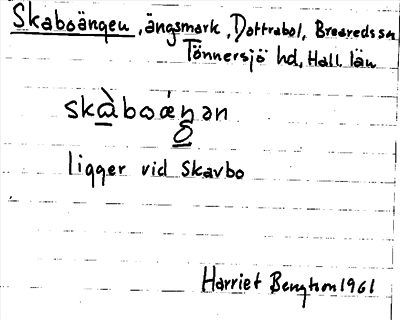 Skaboängen, ängsmark, Dottrabol, Breareds sn
Tönnersjö hd, Hall. län
skàboǽŋən
ligger vid Skavbo
Harriet Bengtson 1961